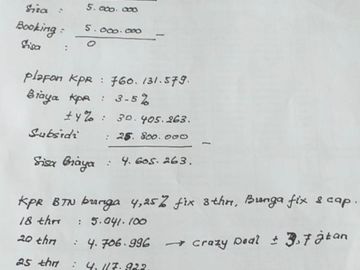 Sisa : 5.000.000
Booking : 5.000.000 —
Sisa : 0
plafon KPR : 760.131.579.
Biaya KPR : 3-5%
± 4% : 30.405.263.
Subsidi : 25.800.000 —
Sisa Biaya : 4.605.263.
KPR BTN bunga 4,25% fix 3 thn, Bunga fix & cap.
18 thn : 5.041.100
20 thn : 4.706.996 → crazy Deal ± 3,7 jtan
25 thn : 4.117.922